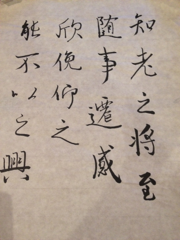 知老之将至
随事遷感
欣俛仰之
能不以之興